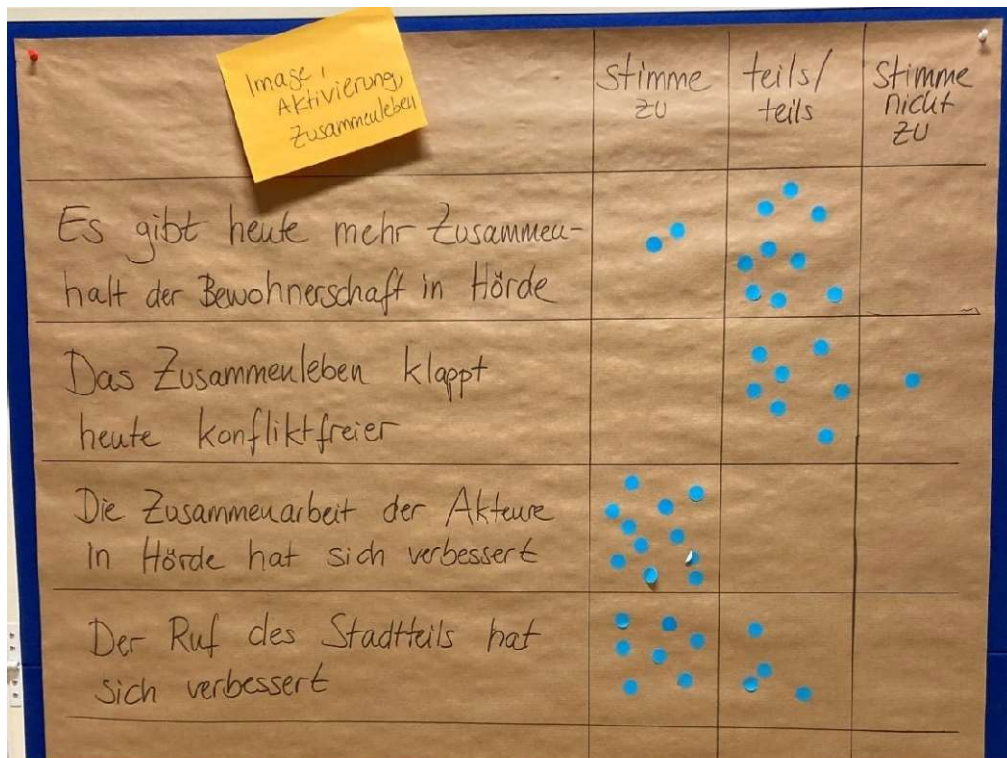 Image,
Aktivierung,
Zusammenleben
stimme
zu
teils/
teils
stimme
nicht
zu
Es gibt heute mehr Zusammen-
halt der Bewohnerschaft in Hörde
Das Zusammenleben klappt
heute konfliktfreier
Die Zusammenarbeit der Akteure
in Hörde hat sich verbessert
Der Ruf des Stadtteils hat
sich verbessert